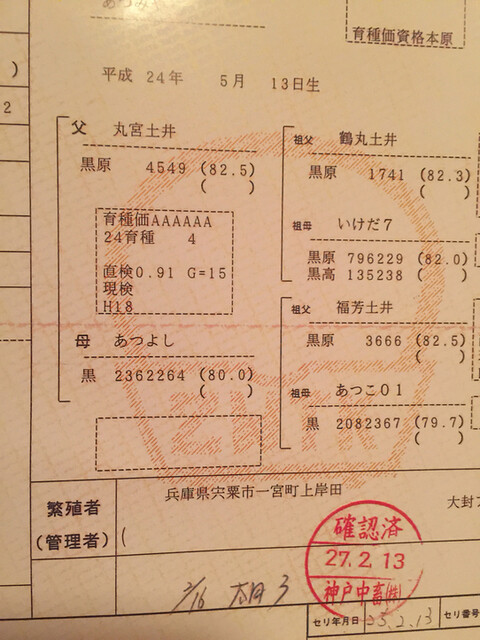 育種価資格本原
平成 24年 5月 13日生
父 丸宮土井
黒原 4549 (82.5)
( )
育種価AAAAAA
24育種 4
直検0.91 G=15
現検
H18
母 あつよし
黒 2362264 (80.0)
( )
祖父 鶴丸土井
黒原 1741 (82.3)
( )
祖母 いけだ7
黒原 796229 (82.0)
黒高 135238 ( )
祖父 福芳土井
黒原 3666 (82.5)
( )
祖母 あつこ01
黒 2082367 (79.7)
( )
)
2
繁殖者
(管理者)
兵庫県宍粟市一宮町上岸田
大封
(
確認済
27.2.13
神戸中畜(株)
2/16
セリ年月日
セリ番号